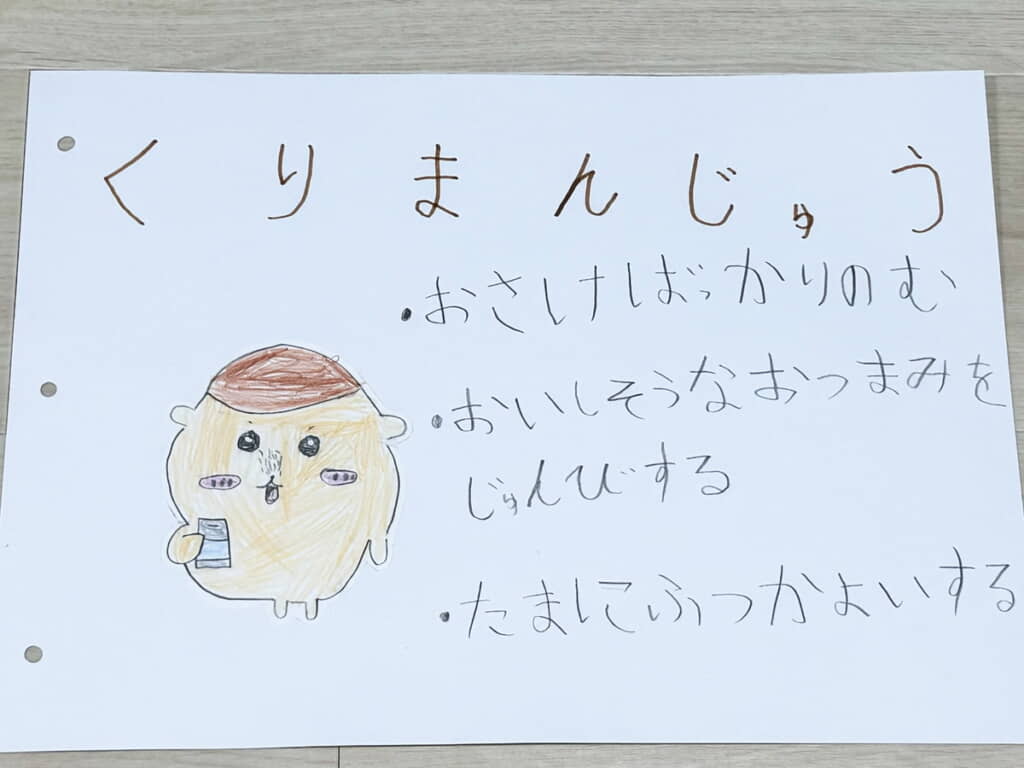 くりまんじゅう
・おさけばっかりのむ
・おいしそうなおつまみを
じゅんびする
・たまにふつかよいする